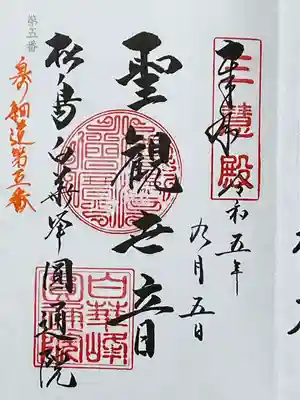 奉拝
三慧殿
令和五年
九月五日
聖観世音
松島白華峰圓通院
白華峰
圓通院
奥の細道第五番
第五番